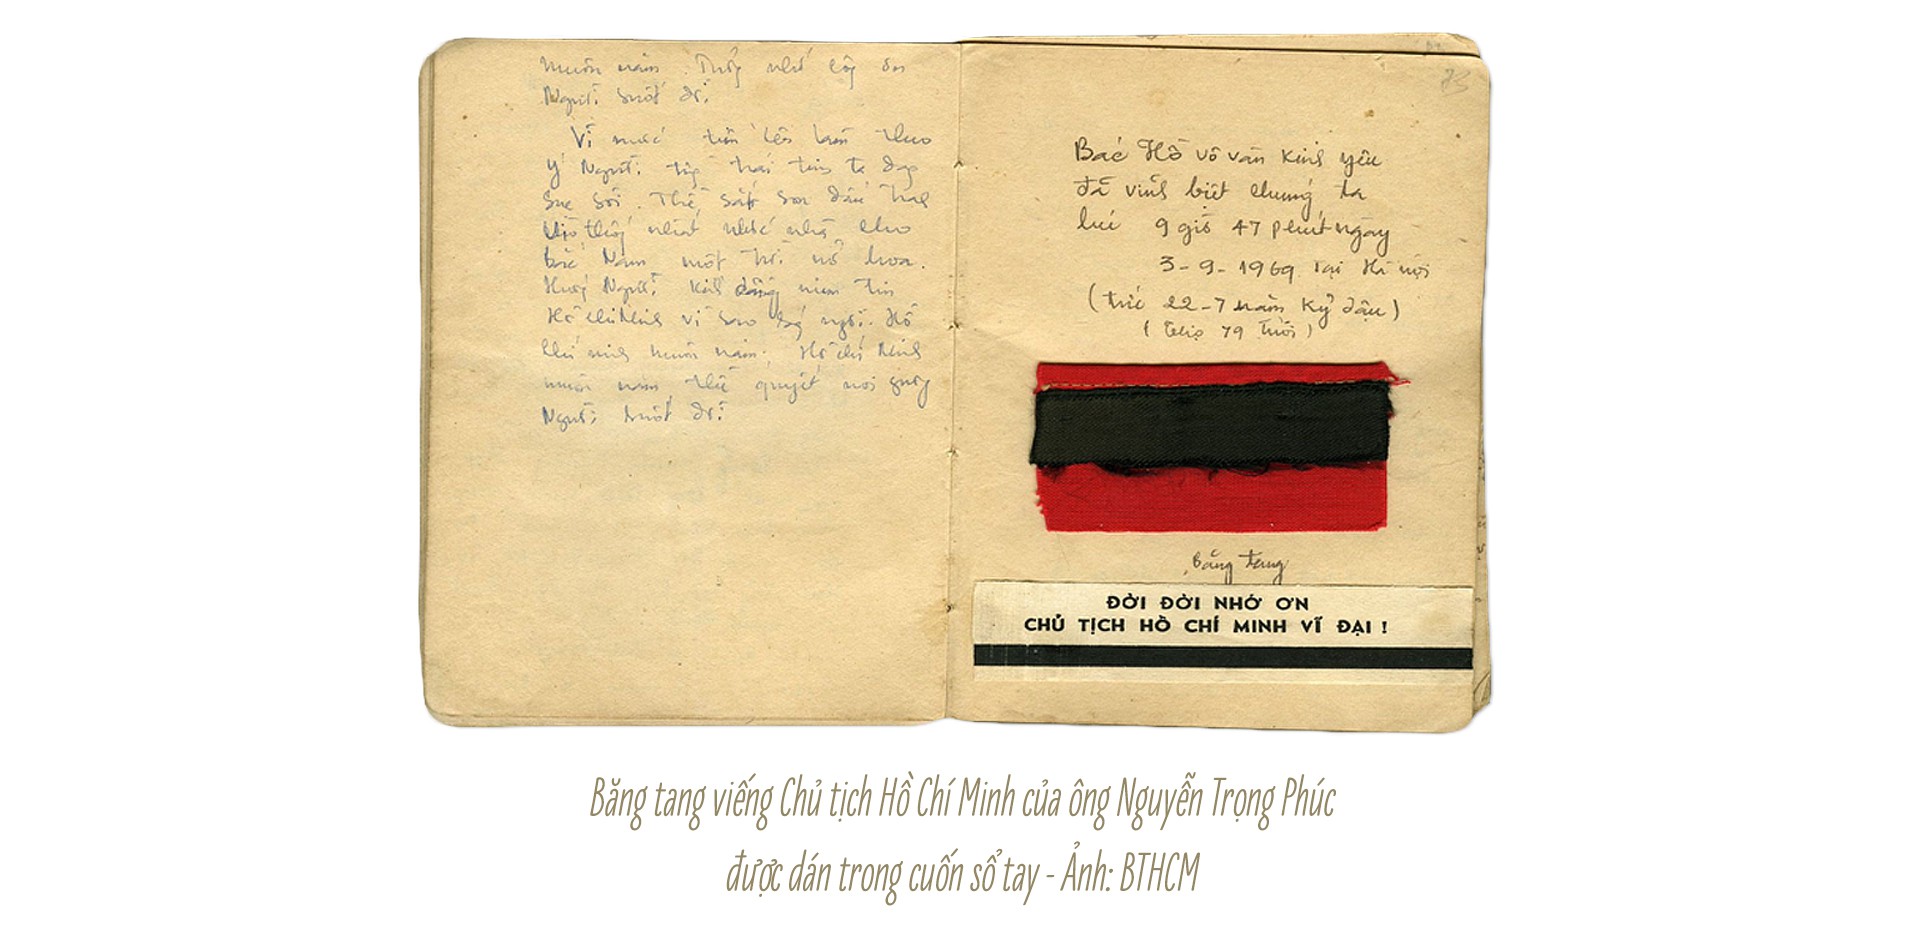 muôn năm. Thống nhất công ơn
Người suốt đời
Vì nước tiến lên làm theo
Ý Người. từng trái tim ta đang
sục sôi. Thề sắt son đấu tranh
thống nhất nước nhà cho
Bắc Nam một trời nở hoa.
Hướng Người. Kính dâng niềm tin
Hồ Chí Minh vì sao sáng ngời. Hồ
Chí minh muôn năm, Hồ Chí Minh
muôn năm thề quyết noi gương
Người suốt đời
Bác Hồ vô vàn kính yêu
đã vĩnh biệt chúng ta
lúc 9 giờ 47 phút ngày
3-9-1969 Tại Hà nội
(tức 22-7 năm Kỷ dậu)
(thọ 79 tuổi)
Băng tang
ĐỜI ĐỜI NHỚ ƠN
CHỦ TỊCH HỒ CHÍ MINH VĨ ĐẠI !
Băng tang viếng Chủ tịch Hồ Chí Minh của ông Nguyễn Trọng Phúc
được dán trong cuốn sổ tay - Ảnh: BTHCM